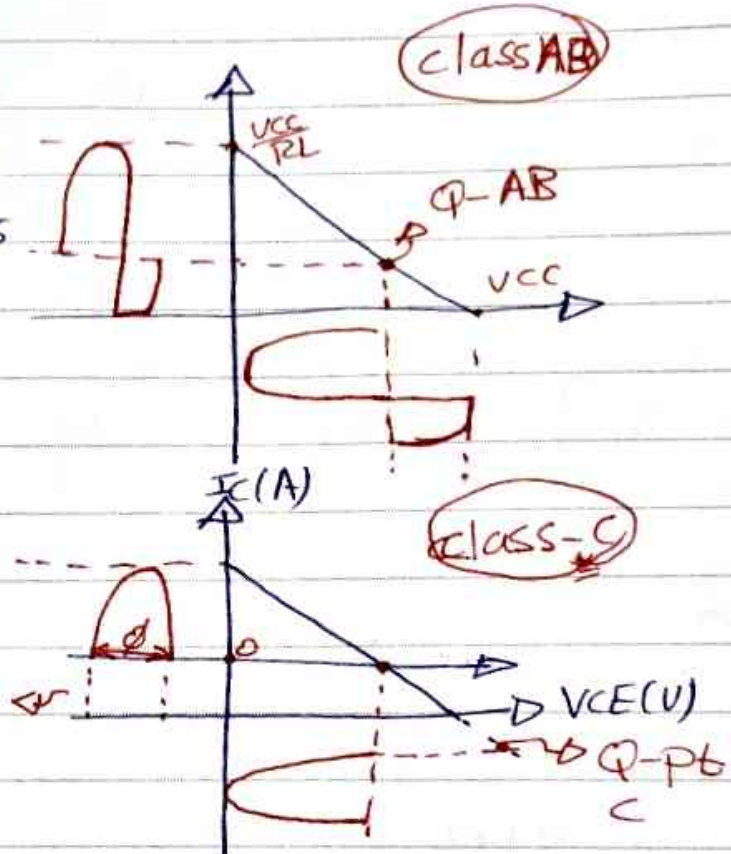 class AB
VCC
RL
Q-AB
VCC
IC(A)
class-C
φ
0
VCE(V)
Q-pt
C